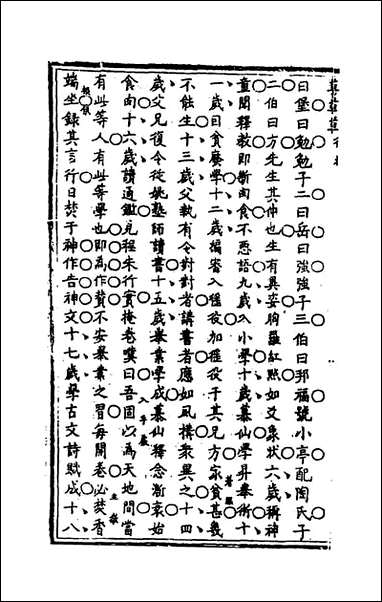 曰堡曰勉勉子二曰岳曰強強子三伯曰邦福號小亭配陶氏子
二伯曰方先生其仲也生有異姿胸羅紅㸃如爻象狀六歲稱神
童聞釋教即斷肉食不惡語九歲入小學十歲慕仙學昇舉術十
一歲因貧廢學十二歲編審入徭役加徭役于其兄方家貧甚幾
不能生十三歲父執有令對對者講書者應如風構衆異之十四
歲父兄復令從姚塾師讀書十五歲舉業學成慕仙釋念漸衰始
食肉十六歲讀通鑑見程朱行實掩卷嘆曰吾固以為天地間當
有此等人有此等學也即為作贊不安舉業之習每開卷必焚香
端坐錄其言行日焚于神作告神文十七歲學古文詩賦成十八